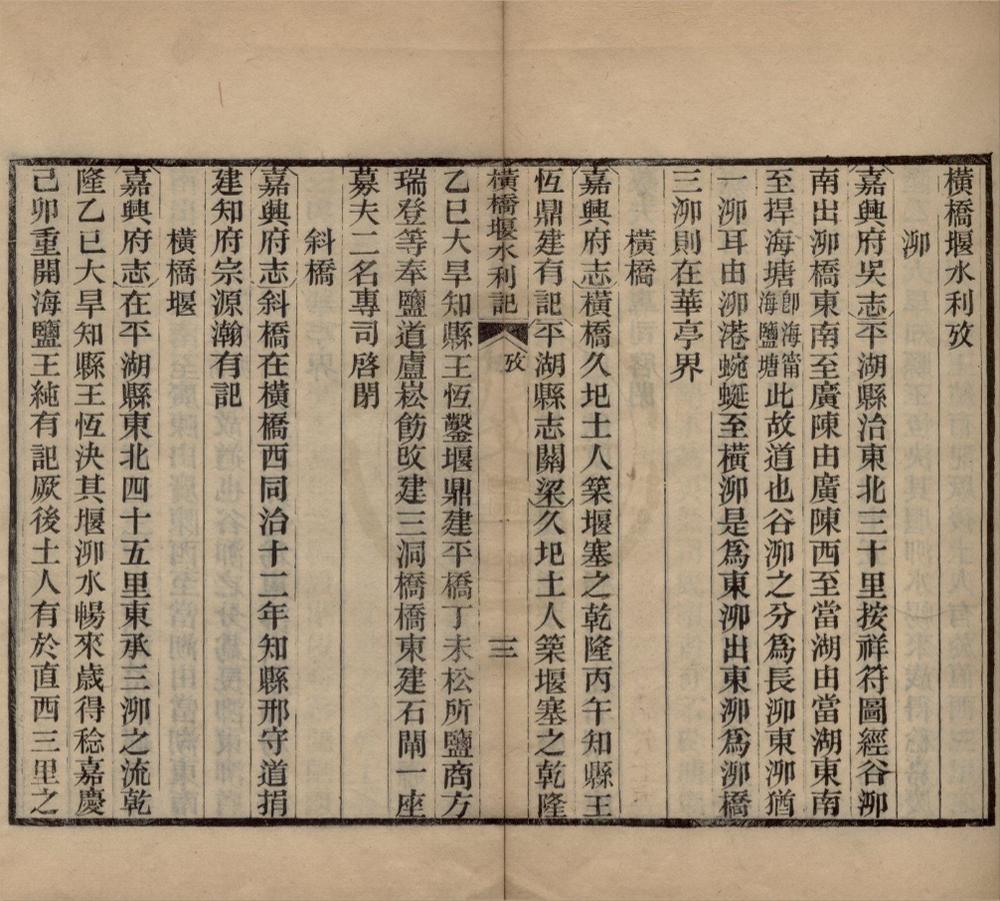 橫橋堰水利攷
泖
嘉興府吳志平湖縣治東北三十里按祥符圖經谷泖
南出泖橋東南至廣陳由廣陳西至當湖由當湖東南
至捍海塘卽海甯海鹽塘此故道也谷泖之分爲長泖東泖猶
一泖耳由泖港蜿蜒至橫泖是爲東泖出東泖爲泖橋
三泖則在華亭界
橫橋
嘉興府志橫橋久圯土人築堰塞之乾隆丙午知縣王
恆鼎建有記平湖縣志關梁久圯土人築堰塞之乾隆
橫橋堰水利記
攷
三
乙巳大旱知縣王恆鑿堰鼎建平橋丁未松所鹽商方
瑞登等奉鹽道盧崧飭改建三洞橋橋東建石閘一座
募夫二名專司啓閉
斜橋
嘉興府志斜橋在橫橋西同治十二年知縣邢守道捐
建知府宗源瀚有記
橫橋堰
嘉興府志在平湖縣東北四十五里東承三泖之流乾
隆乙巳大旱知縣王恆決其堰泖水暢來歲得稔嘉慶
己卯重開海鹽王純有記厥後土人有於直西三里之